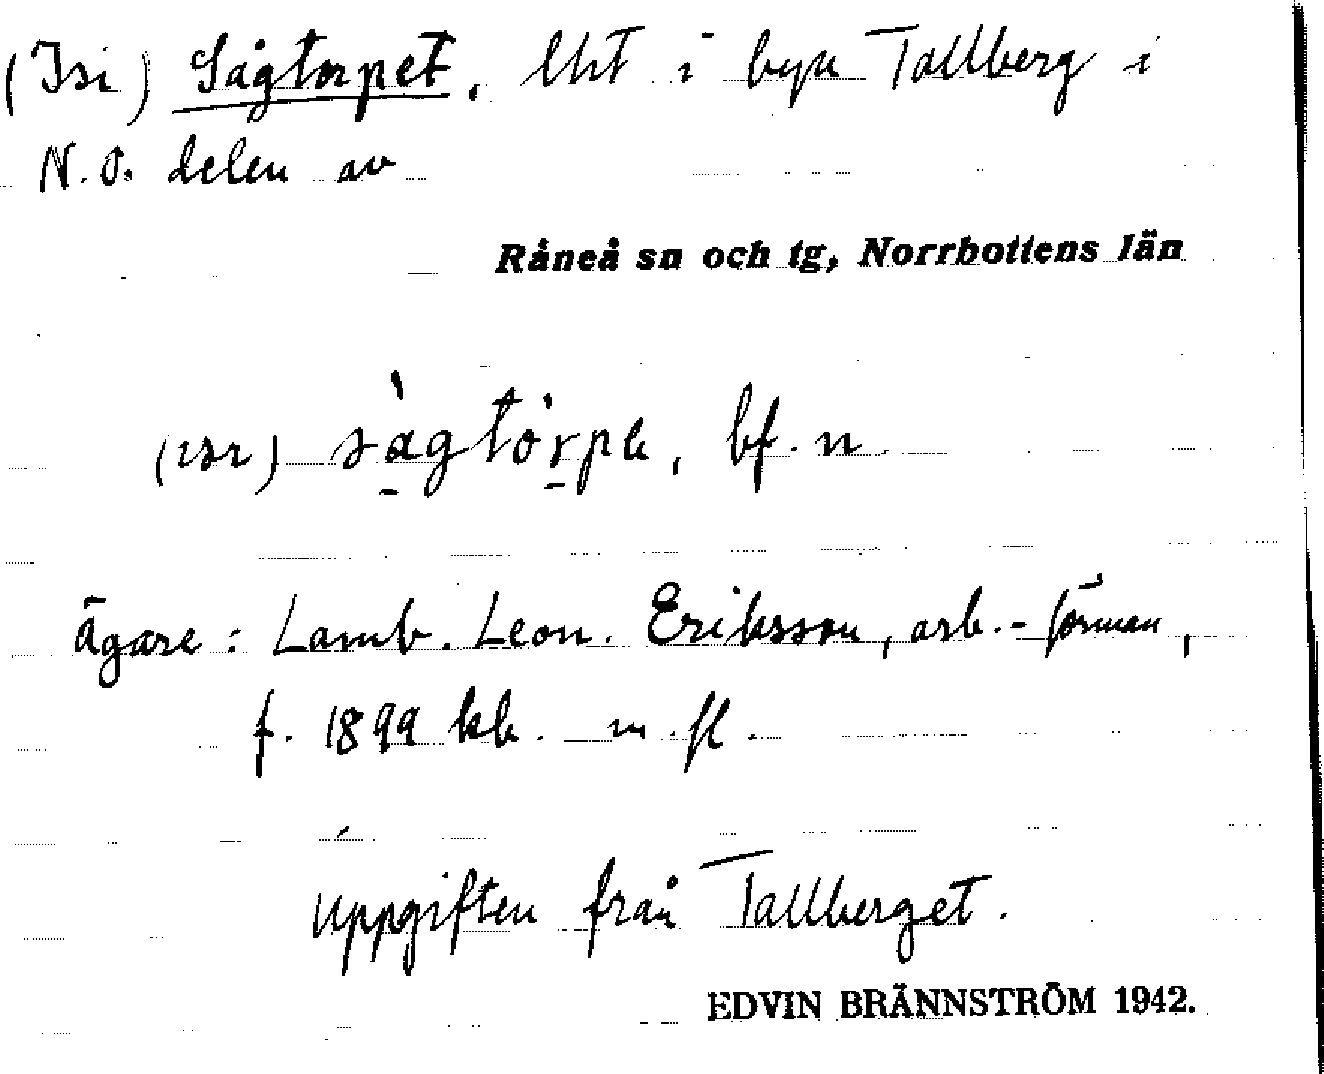 (Isi) Sågtorpet, lht i byn Tallberg i
N.O. delen av
Råneå sn och tg, Norrbottens län
(ısı) sàgtòrpə, bf. n
Ägare: Lamb. Leon. Eriksson, arb.-förman,
f. 1899 kb. m.fl.
Uppgiften från Tallberget.
EDVIN BRÄNNSTRÖM 1942.